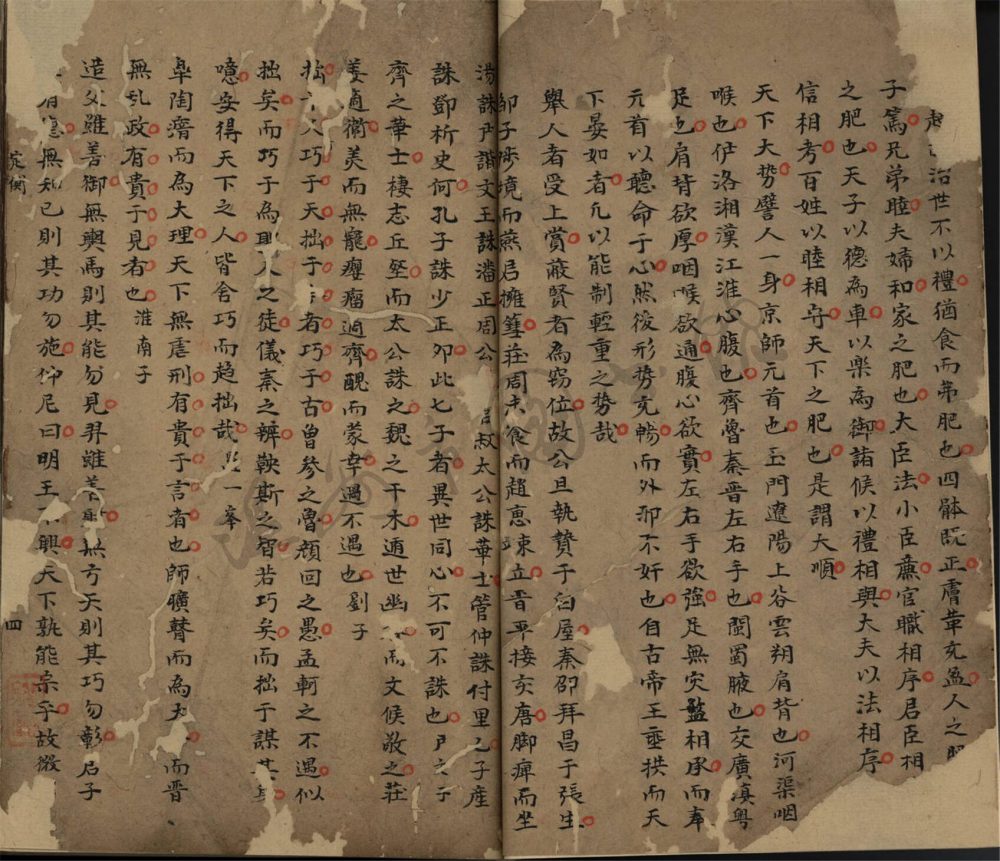 治世不以禮猶食而弗肥也四骵既正膚革充盈人之肥
子篤兄弟睦夫婦和家之肥也大臣法小臣亷官職相序君臣相
之肥也天子以德為車以樂為御諸候以禮相與大夫以法相序
信相考百姓以睦相守天下之肥也是謂大順
天下大势譬人一身京師元首也玉門遼陽上谷雲朔肩背也河渠咽
喉也伊洛湘漢江淮心腹也齊魯秦晋左右手也閩蜀腋也交廣滇粤
足也肩背欲厚咽喉欲通腹心欲實左右手欲強足無灾盭相承而奉
元首以聽命于心然後形势充暢而外邪不奸也自古帝王垂拱而天
下晏如者凢以能制輕重之势哉
舉人者受上賞蔽賢者為竊位故公旦執贄于白屋秦邵拜昌于張生
邹子境而燕君擁篲莊周未食而趙惠竦立晋平接亥唐脚痺而坐
湯誅尹諧文王誅潘正周公叔太公誅華士管仲誅付里乙子產
誅鄧析史何孔子誅少正夘此七子者異世同心不可不誅也尸文子
齊之華士棲志丘壑而太公誅之魏之干木遁世幽而文候敬之莊
姜適衛美而無寵癭瘤適齊醜而蒙幸遇不遇也劉子
拙人巧于天拙于者巧于古曾參之魯顏回之愚孟軻之不遇似
拙矣而巧于為聖人之徒儀秦之辨鞅斯之智若巧矣而拙于謀其身
噫安得天下之人皆舍巧而趋拙哉一峯
皐陶瘖而為大理天下無虐刑有貴于言者也師曠瞽而為太而晋
無乱政有貴于見者也淮南子
造父雖善御無輿馬則其能勿見羿雖善射無弓矢則其巧勿彰君子
無知已則其功勿施仲尼曰明王不興天下孰能宗乎故微
四